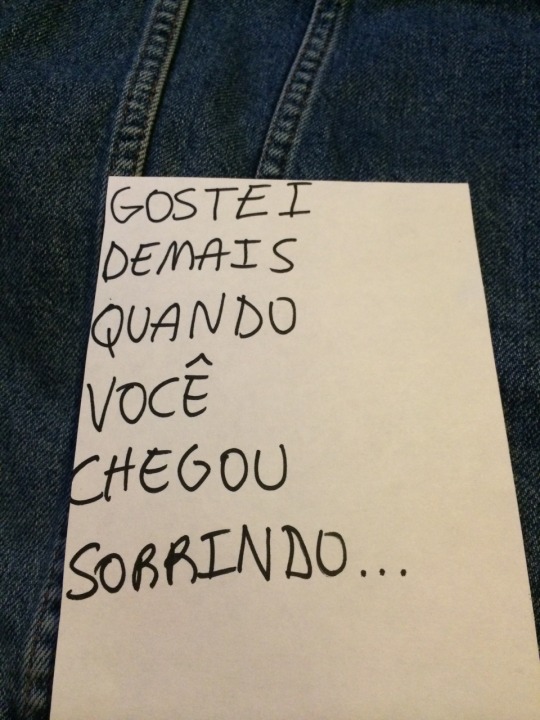 GOSTEI
DEMAIS
QUANDO
VOCÊ
CHEGOU
SORRINDO...